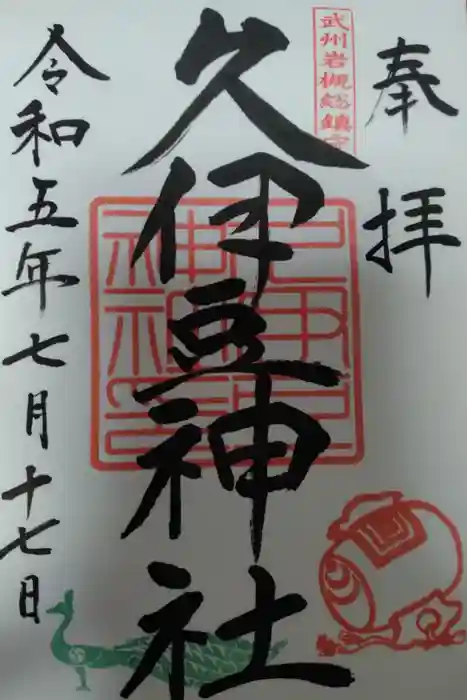 奉拝
武州岩槻総鎮守
久伊豆神社
令和五年七月十七日